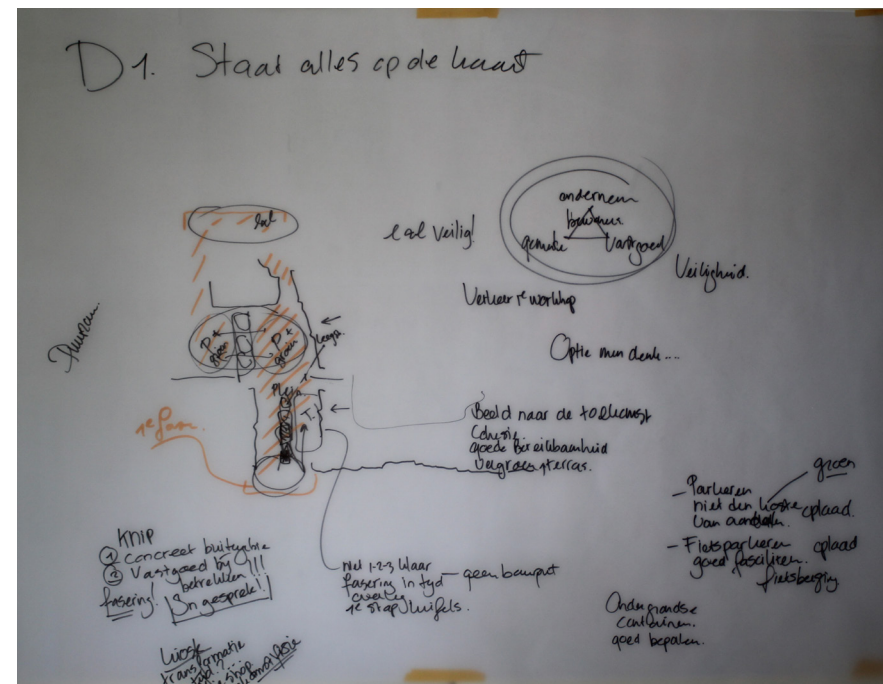 D1. Staat alles op de kaart
ondernem
bewoners
gemeente
Vastgoed
Veiligheid.
Verkeer 1e workshop
Optie mun denk....
P + groen
P + groen
1e fase.
Beeld naar de toekomst
Cohesie
goede Bereikbaarheid
Vergroen terras.
groen
- Parkeren
niet den koste oplaad.
van aantallen.
- Fietsparkeren oplaad
goed faciliteren.
fietsberging
KNIP
① concreet buitenruimte
② Vastgoed bij
betrekken !!!
fasering! In gesprek!!
Niet 1-2-3 klaar
fasering in tijd — geen bouwput
1e stap luifels.
Ondergrondse
containeren.
goed bepalen.
kiosk
transformatie